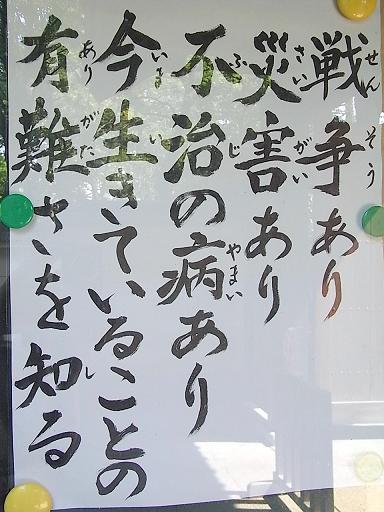 戦争あり
せんそう
災害あり
さいがい
不治の病あり
ふじ やまい
今生きていることの
いま い
有難さを知る
ありがた し